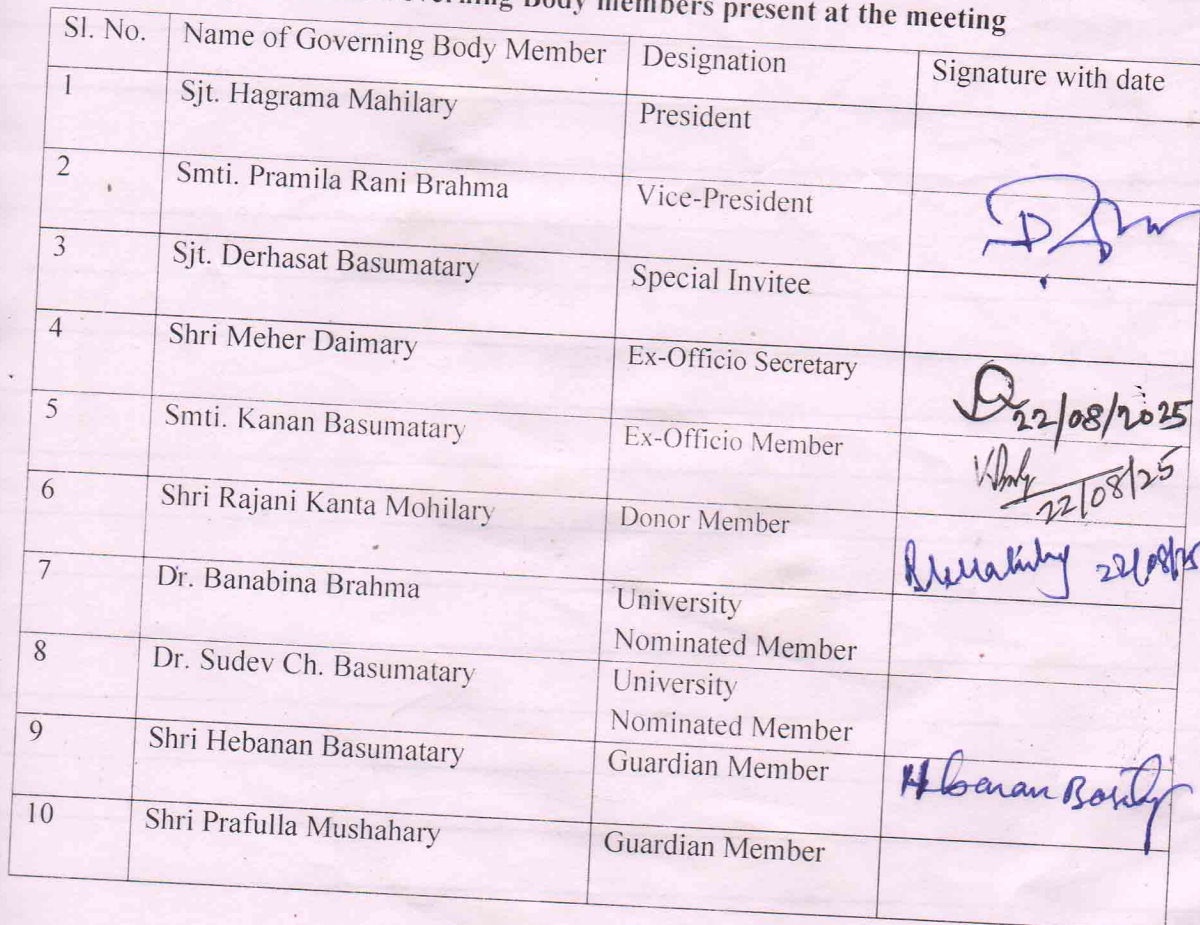 Body members present at the meeting
Sl. No. Name of Governing Body Member Designation Signature with date
1 Sjt. Hagrama Mahilary President
2 Smti. Pramila Rani Brahma Vice-President
3 Sjt. Derhasat Basumatary Special Invitee
4 Shri Meher Daimary Ex-Officio Secretary 22/08/2025
5 Smti. Kanan Basumatary Ex-Officio Member 22/08/25
6 Shri Rajani Kanta Mohilary Donor Member 22/08/25
7 Dr. Banabina Brahma University
Nominated Member
8 Dr. Sudev Ch. Basumatary University
Nominated Member
9 Shri Hebanan Basumatary Guardian Member
10 Shri Prafulla Mushahary Guardian Member